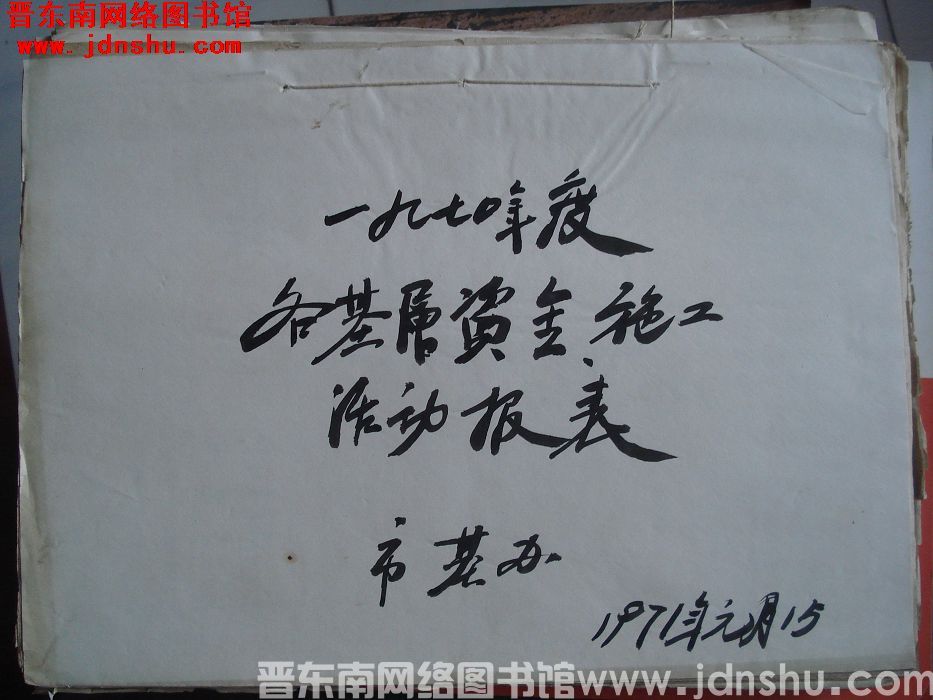 晋东南网络图书馆
www.jdnshu.com
一九七〇年度
各基層資金、施工
活动报表
市基办
1971年元月15
晋东南网络图书馆www.jdnshu.com